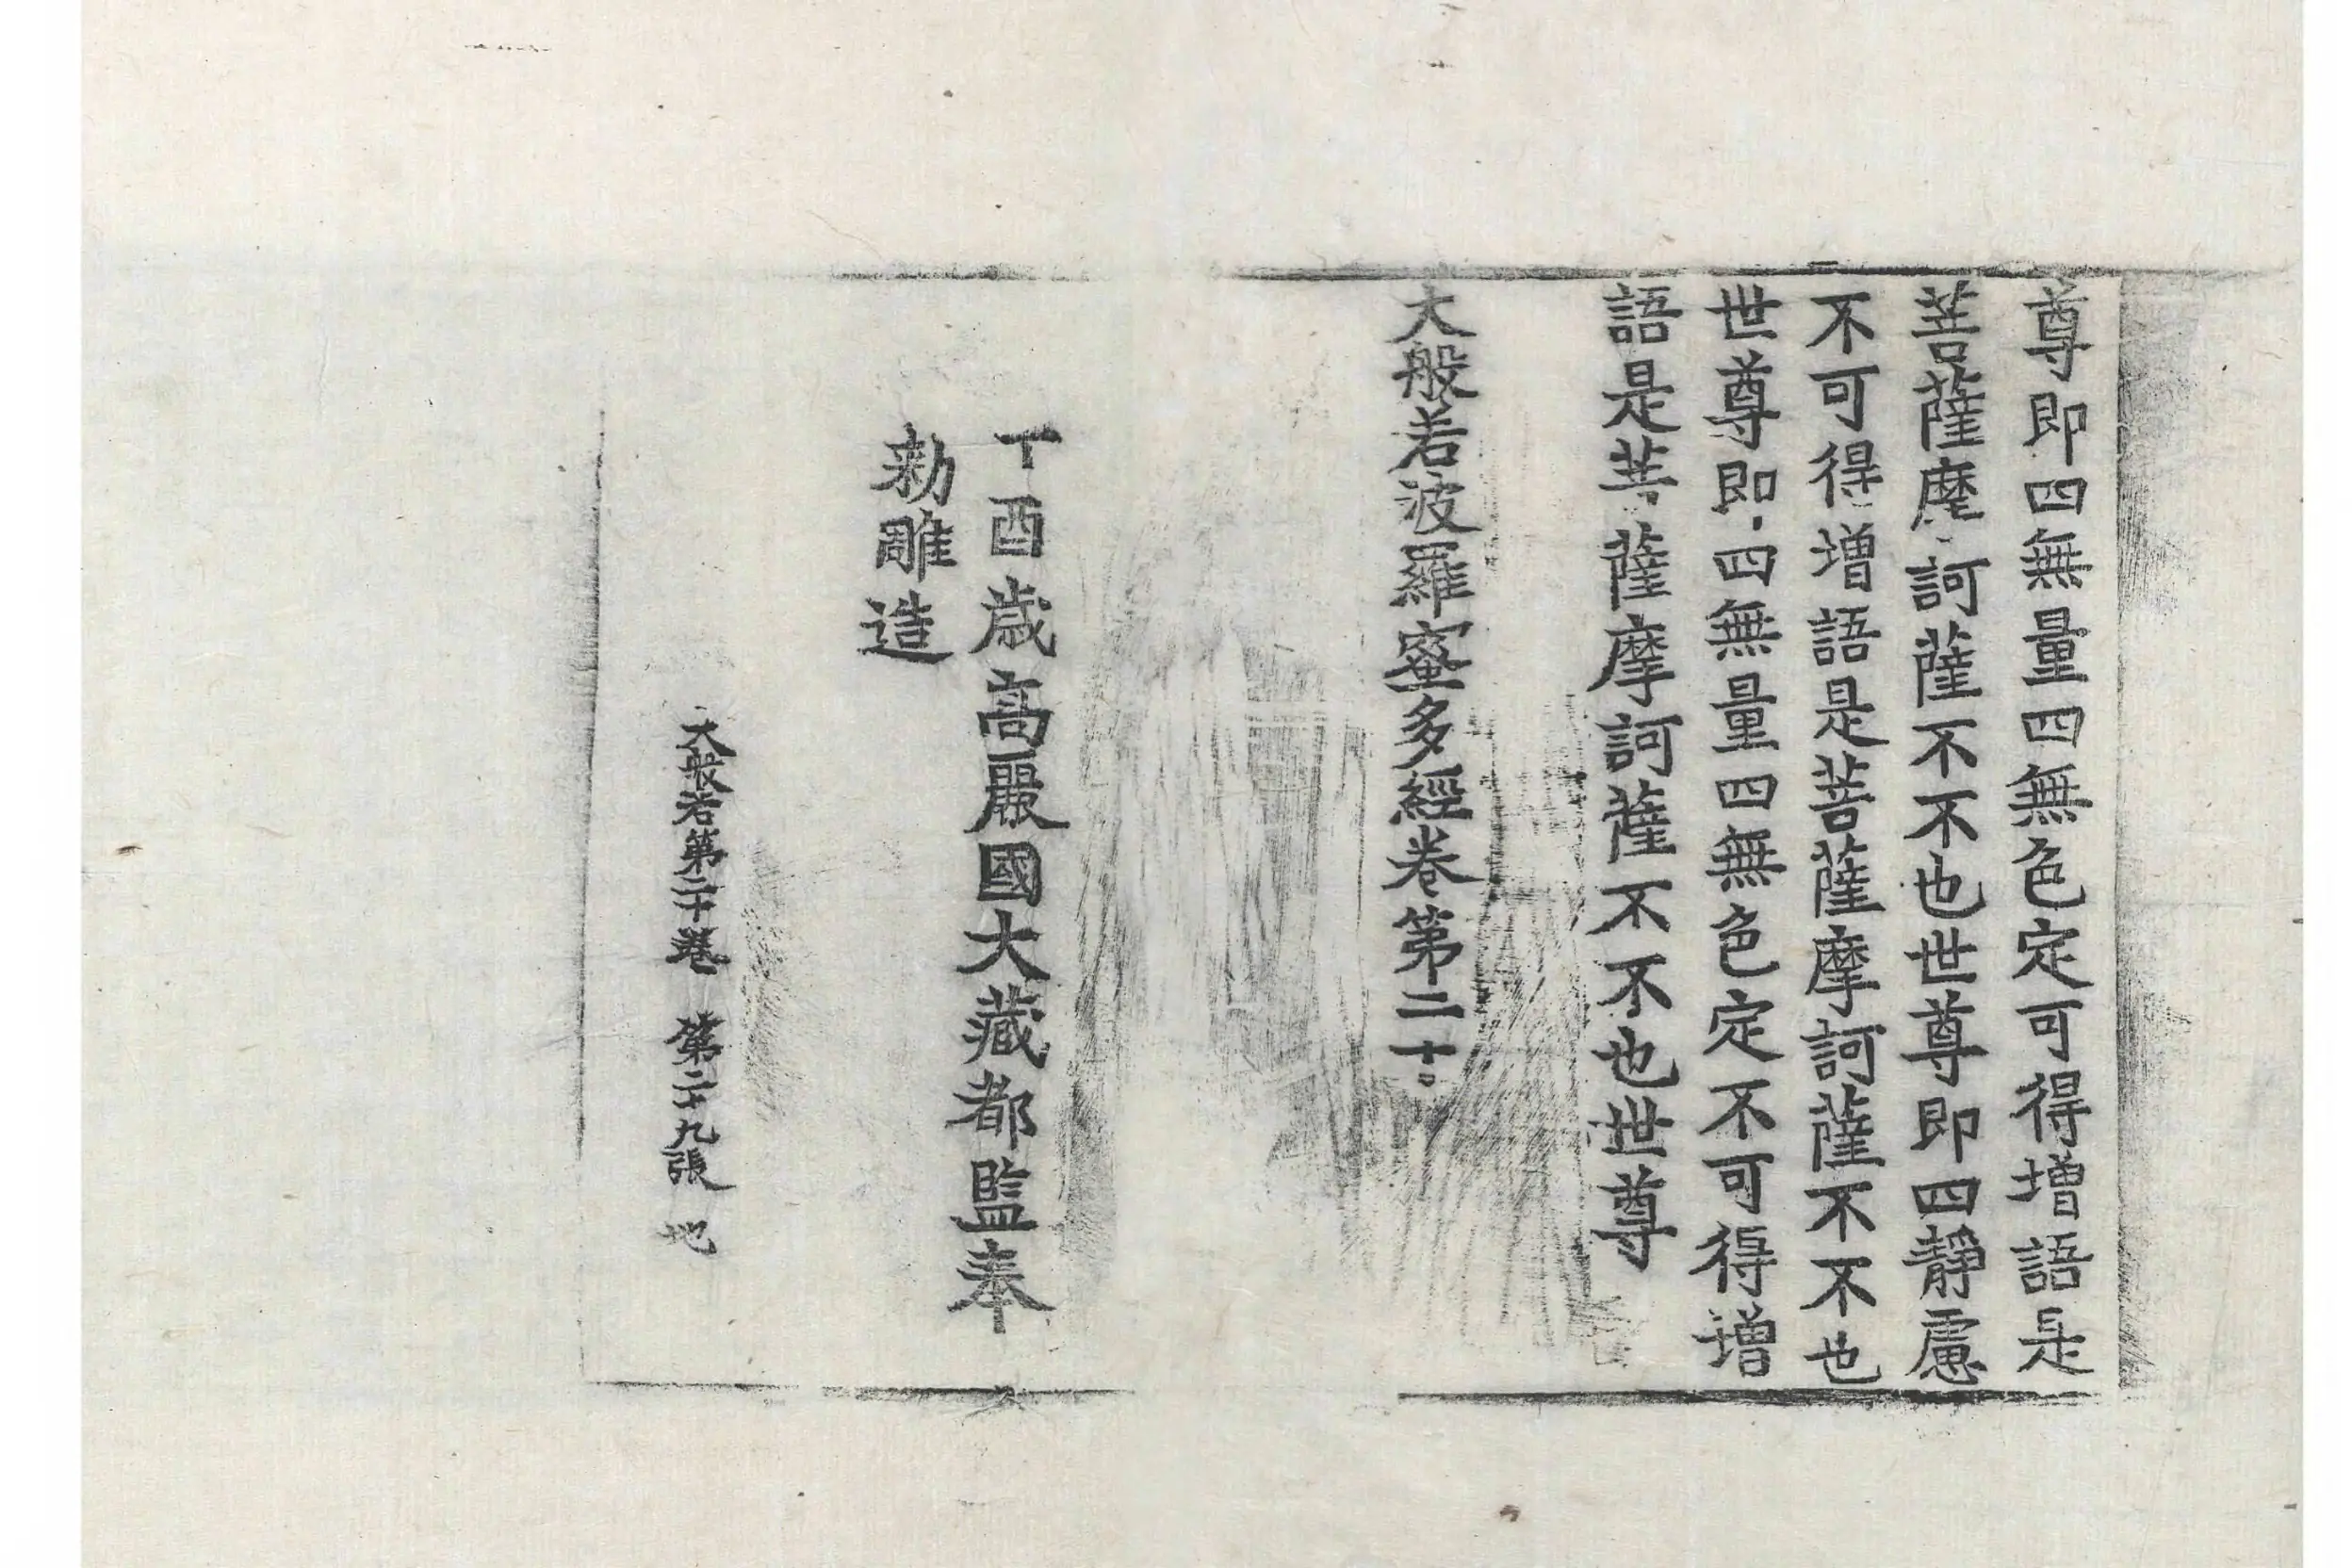 尊即四無量四無色定可得增語是
菩薩摩訶薩不不也世尊即四靜慮
不可得增語是菩薩摩訶薩不不也
世尊即四無量四無色定不可得增
語是菩薩摩訶薩不不也世尊
大般若波羅蜜多經卷第二十
丁酉歲高麗國大藏都監奉
勅雕造
大般若第二十卷 第二十九張 地